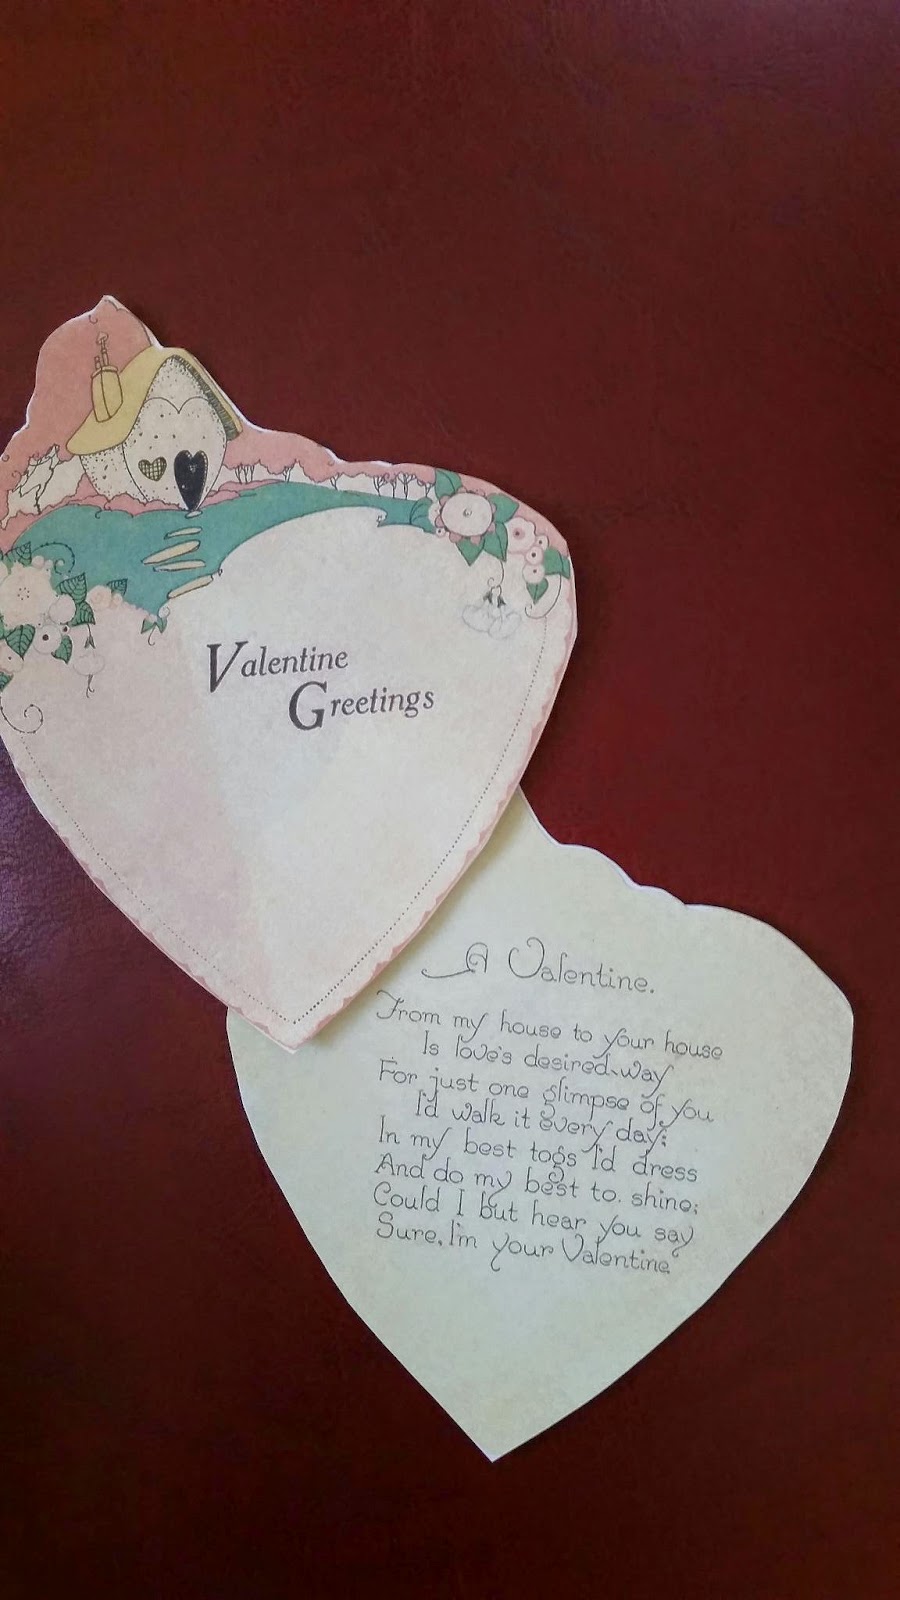 Valentine
Greetings
A Valentine.
From my house to your house
Is love's desired way
For just one glimpse of you
I'd walk it every day;
In my best togs I'd dress
And do my best to shine;
Could I but hear you say
Sure, I'm your Valentine